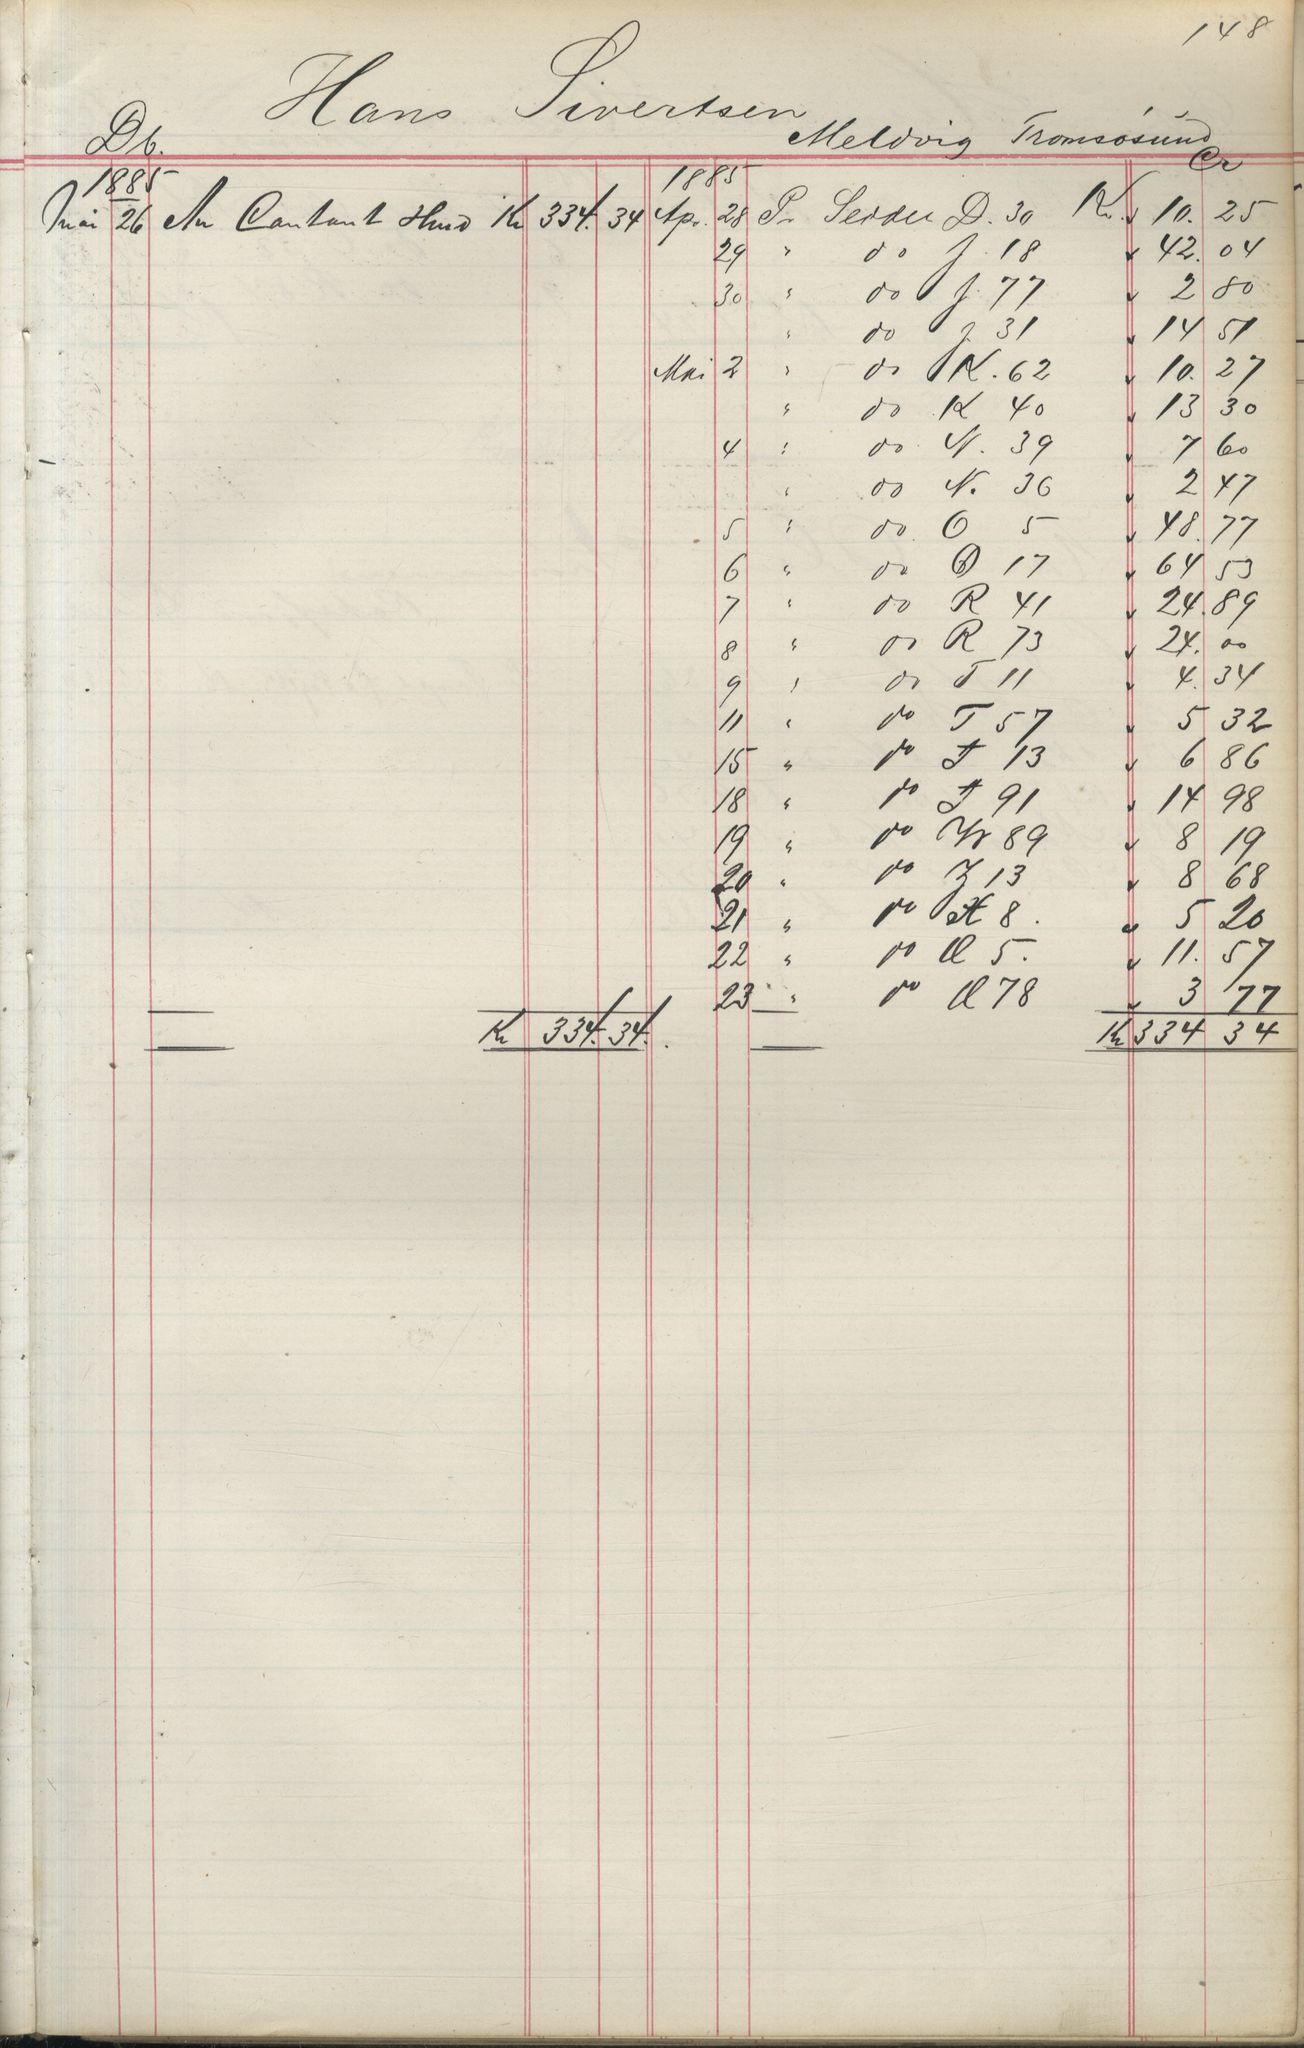 148
Hans Sivertsen
Meldvig Tromsösund
Db. Cr
1885 1885
Mai 26 An Contant Kr 334. 34 Ap. 28 Pr Seddel D. 30 Kr. " 10. 25
29 " do J. 18 " 42. 04
30 " do J. 77 " 2 80
" do J. 31 " 14 51
Mai 2 " do K. 62 " 10. 27
" do K 40 " 13 30
4 " do N. 39 " 7 60
" do N. 36 " 2 47
5 " do O 5 " 48. 77
6 " do 17 " 64 53
7 " do R 41 " 24. 89
8 " do R 73 " 24. 00
9 " do T 11 " 4. 34
11 " do T 57 " 5 32
15 " do 13 " 6 86
18 " do 91 " 14 98
19 " do 89 " 8 19
20 " do Z 13 " 8 68
21 " do Æ 8. " 5 20
22 " do Œ 5. " 11. 57
23 " do Œ 78 " 3 77
Kr 334. 34. Kr 334 34